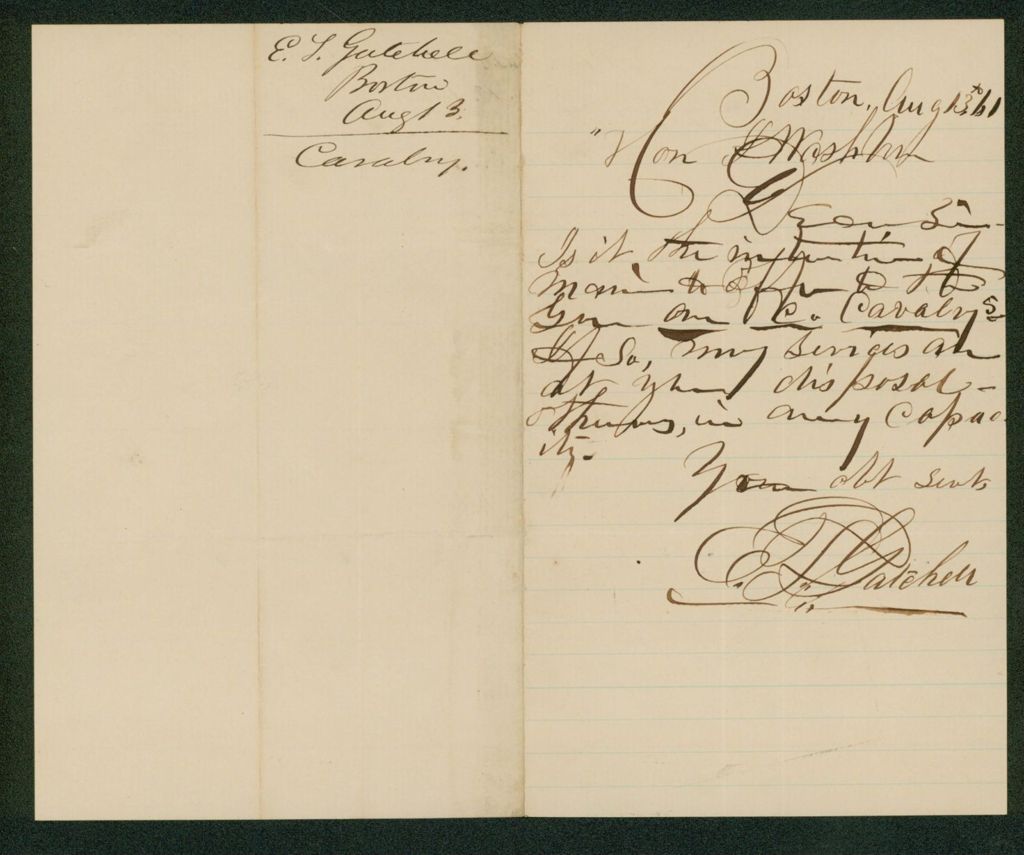 E. L. Gatchell
Boston
Aug 13.
Cavalry.
Boston, Aug 13th 61
"Hon I Washburn
Dear Sir -
Is it the intention of
Maine to offer to the
Gov one Co. Cavalry
If so, my services are
at your disposal -
others, in any capac-
ity.
Your obt servt,
E. L. Gatchell